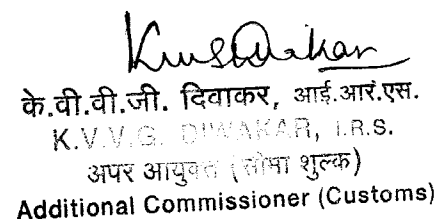 के.वी.वी.जी. दिवाकर, आई.आर.एस.
K.V.V.G. DIWAKAR, I.R.S.
अपर आयुक्त (सीमा शुल्क)
Additional Commissioner (Customs)